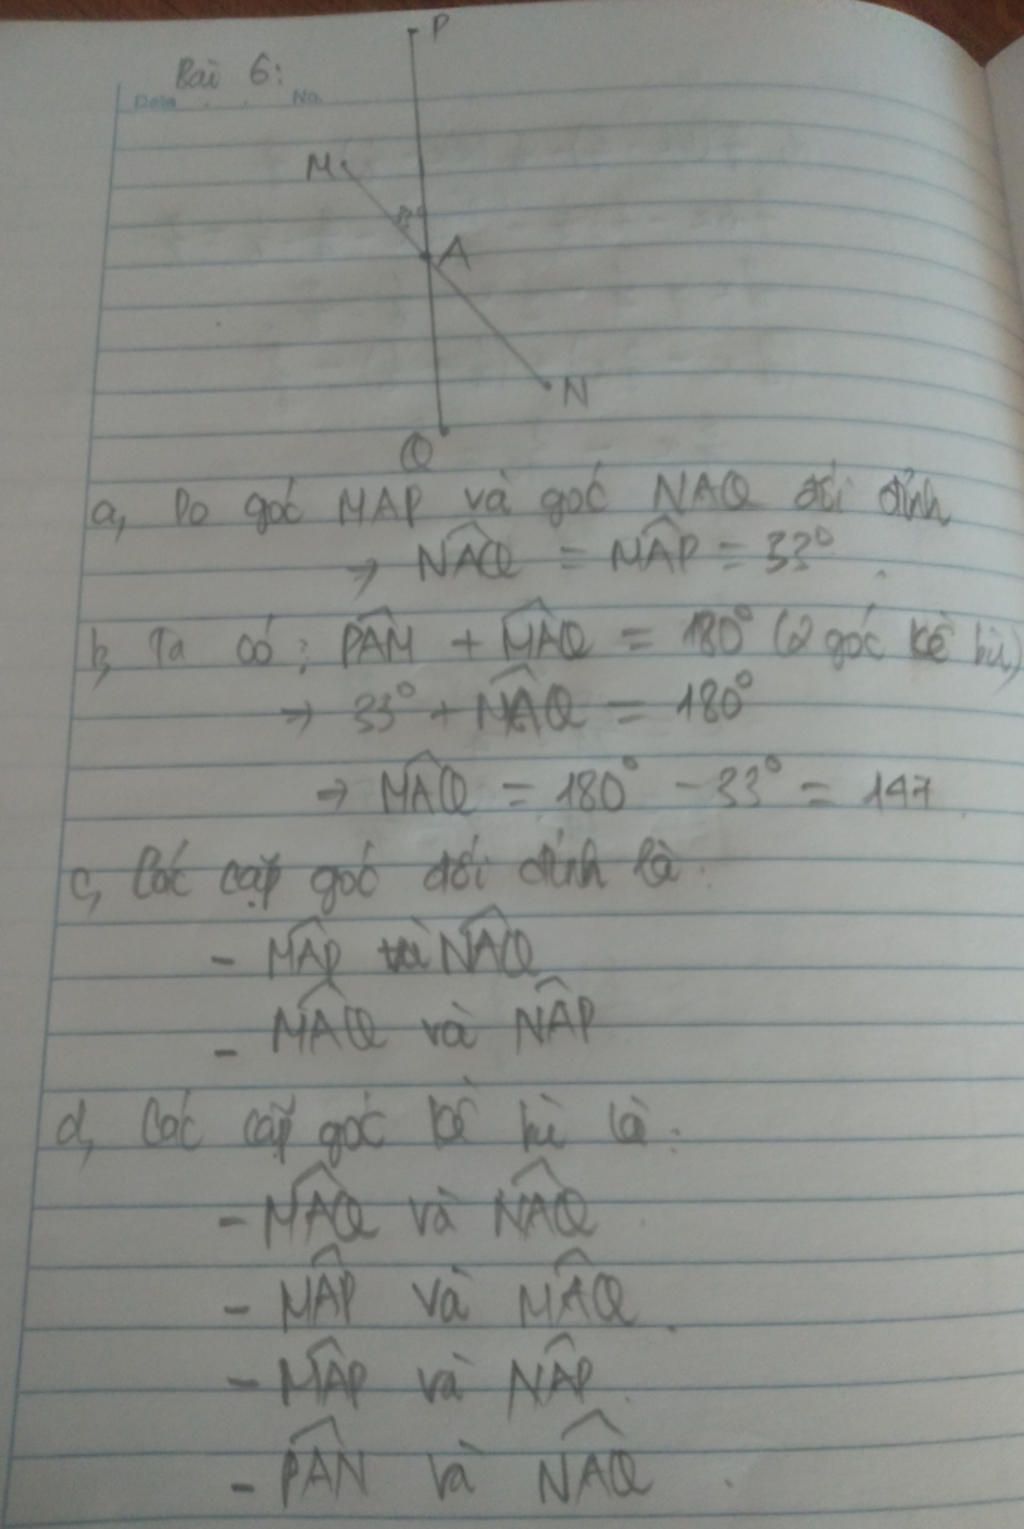 P
Bài 6:
Date . . No.
M
33°
A
N
Q
a, Do góc MAP và góc NAQ đối đỉnh
⇒ NAQ = MAP = 33°
b, Ta có: PAM + MAQ = 180° (2 góc kề bù)
⇒ 33° + MAQ = 180°
⇒ MAQ = 180° - 33° = 147
c, Các cặp góc đối đỉnh là:
- MAP và NAQ
- MAQ và NAP
d, Các cặp góc kề bù là:
- MAQ và NAQ
- MAP và MAQ.
- MAP và NAP.
- PAN và NAQ.